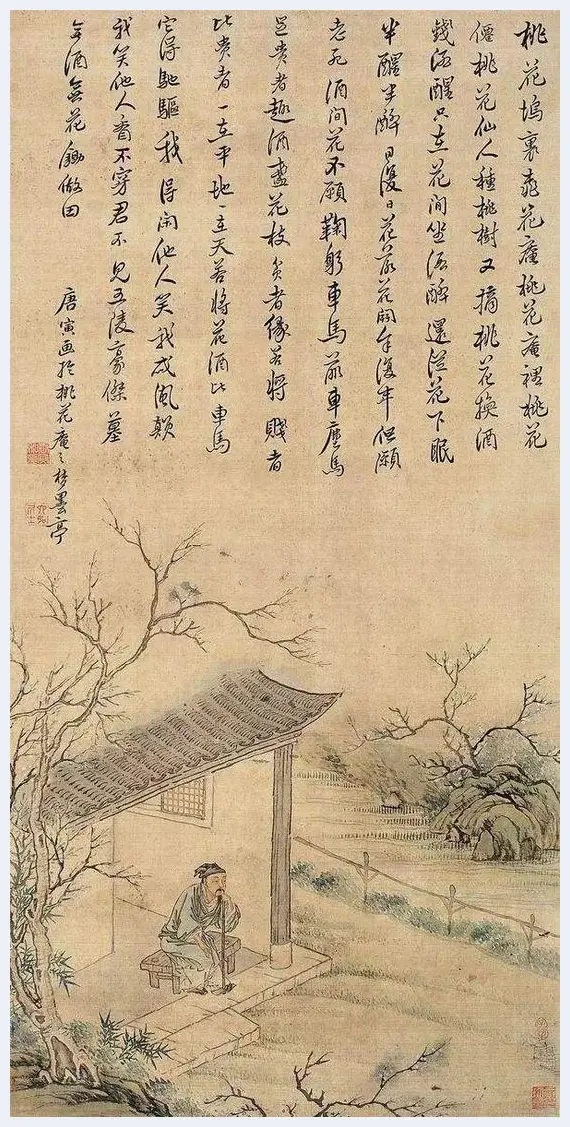 桃花塢裏桃花庵桃花庵裡桃花
僊桃花仙人種桃樹又摘桃花換酒
錢酒醒只在花間坐酒醉還從花下眠
半醒半醉日復日花落花開年復年但願
老死酒間花不願鞠躬車馬前車塵馬
足貴者趣酒盞花枝貧者緣若將賤者
比貴者一在平地一在天若將花酒比車馬
它得馳驅我得閑他人笑我成風顛
我笑他人看不穿君不見五陵豪傑墓
無酒無花鋤做田
唐寅画於桃花庵之夢墨亭